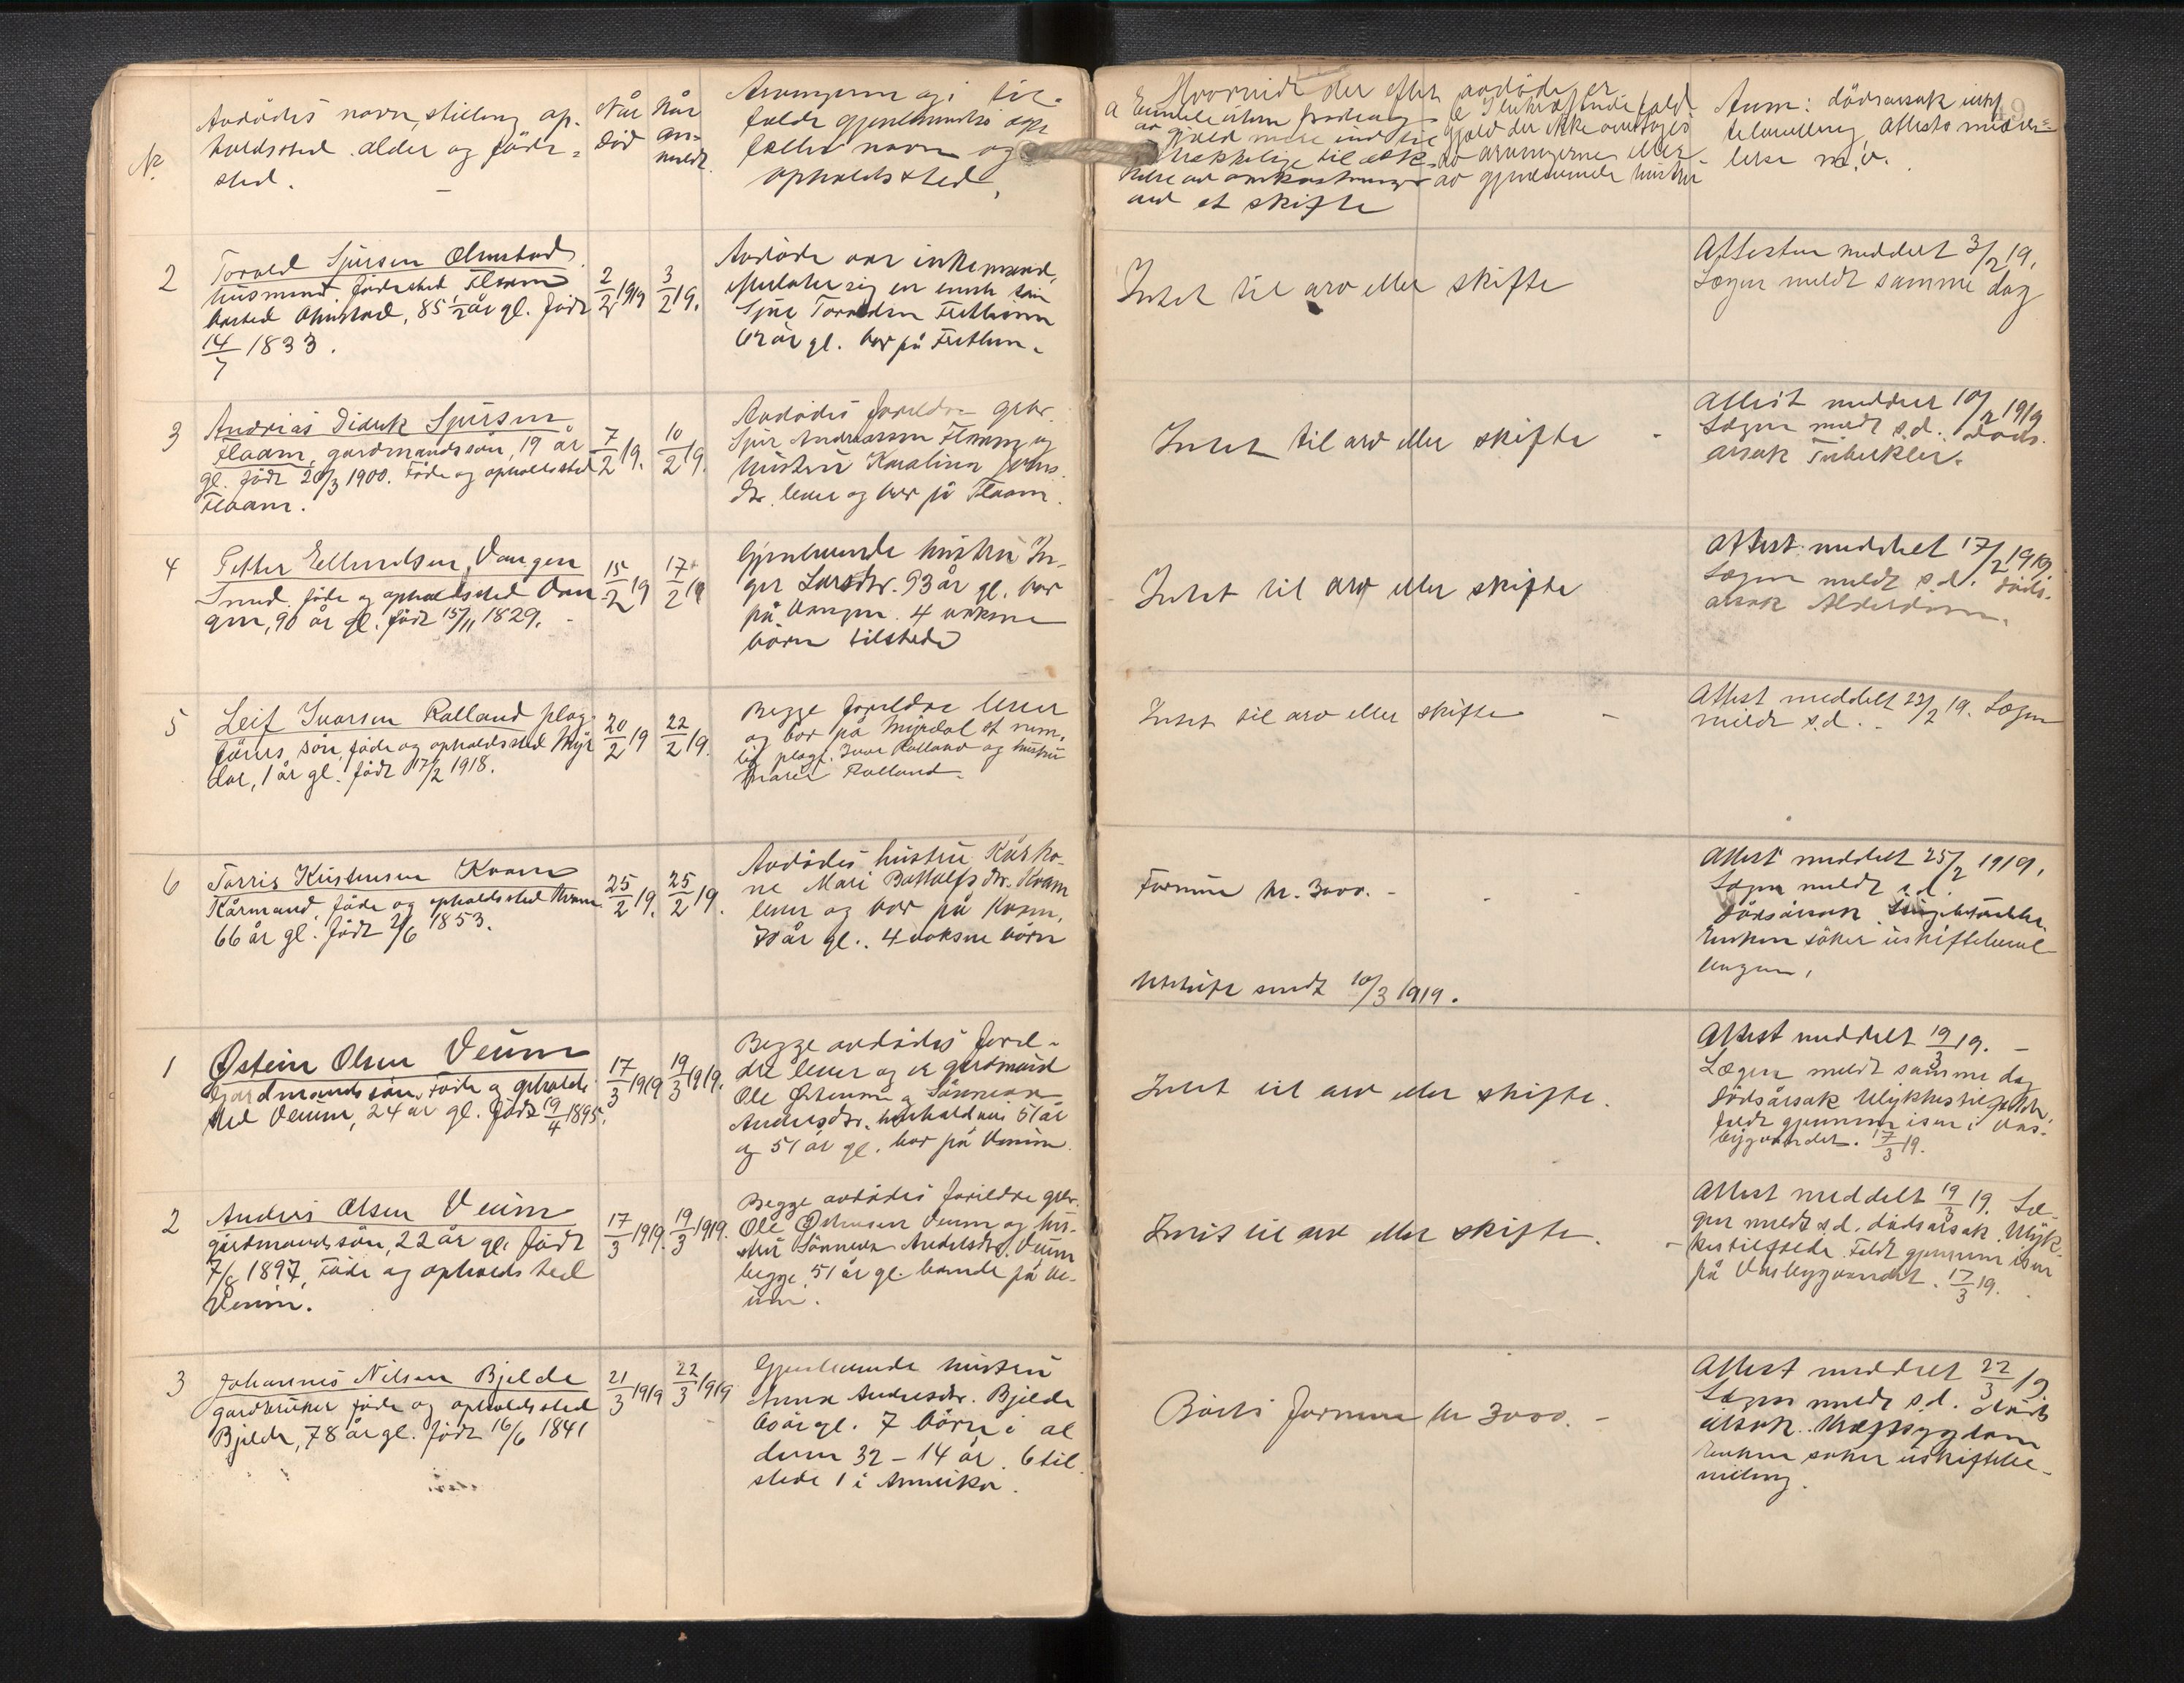 Nr.
Avdödes navn, stilling op-
holdssted. alder og föde-
sted.
Når
död
Når
an-
meldt.
Arvingerne og i til-
fælde gjenlevendes ægte
fælles navn og
opholdssted,
Hvorvidt der efter avdöde er
av gjæld mere end til
ved et skifte
Anm: dödsårsak
Attests meddel-
lelse m.v.
2
Torald Sjursen Ølmstad.
husmand, födested Flaam
bosted Ølmstad, 85 1/2 år gl. födt
14/7 1833.
2/2 1919
3/2 19.
Avdöde var enkemand,
efterlater sig en enste sön
Sjur Toraldsen Fretheim
62 år gl. bor på Frethein.
Intet til arv eller skifte
Attesten meddelt 3/2 19.
Lægen meldt samme dag
3
Andrias Didrik Sjursen
Flaam, gardmandssön, 19 år
gl. födt 20/3 1900. Föde og opholdssted
Flaam.
7/2 19.
10/2 19.
Avdödes foreldre gbr.
Sjur Andreassen Flaam og
hustru Karalina Johns
dtr. lever og bor på Flaam.
Intet til arv eller skifte -
Attest meddelt 10/2 1919
Lægen meldt s.d. Döds-
årsak Tuberkler.
4
Petter Ellendsen Vangen
Smed. föde og opholdssted Van
gen, 90 år gl. födt 15/11 1829.
15/2 19
17/2 19
Gjenlevende hustru In-
ger Larsdtr. 93 år gl. bor
på Vangen. 4 voksne
börn tilstede
Intet til arv eller skifte
Attest meddelt 17/2 1919
Lægen meldt s.d. döds-
årsak Alderdom.
5
Leif Ivarsen Ralland plag.
förers, sön, föde og opholdssted Myr
dal, 1 år gl. födt 17/2 1918.
20/2 19
22/2 19.
Begge foreldre lever
og bor på Myrdal st nem-
lig plagf. Ivar Ralland og hustru
Marie Ralland.
Intet til arv eller skifte -
Attest meddelt 22/2 19. Lægen
meldt s.d.
6
Torris Kristensen Kvam
Kårmand, föde og opholdssted Kvam
66 år gl. födt 2/6 1853.
25/2 19.
25/2 19.
Avdödes hustru Kårko-
ne Mari Bottolfs dtr. Kvam
lever og bor på Kvam,
70 år gl. 4 voksne börn
Formue kr. 3000. -
Utskift sendt 10/3 1919.
Attest meddelt 25/2 1919.
Lægen meldt s.d.
Dödsårsak
Enken söker uskiftebevil
lingen,
1
Østein Olsen Veum
Gardmandssön, Föde og opholds
sted Veum, 24 år gl. födt 19/4 1895.
17/3 1919
19/3 1919.
Begge avdödes forel-
dre lever og er gardmand
Ole Østensen og Sönneva
Andersdtr. henholdsvis 51 år
og 51 år gl. bor på Veum.
Intet til arv eller skifte.
Attest meddelt 19/3 19. -
Lægen meldt samme dag
Dödsårsak Ulykkestilfælde,
faldt gjennem isen i Vas-
bygvandet. 17/3 19.
2
Anders Olsen Veum
gårdmandssön, 22 år gl. födt
7/8 1897, Föde og opholdssted
Veum.
17/3 1919.
19/3 1919.
Begge avdödes foreldre gbr.
Ole Østensen Veum og hus-
stru Sönneva Andersdtr. Veum
begge 51 år gl. boende på Ve-
um.
Intet til arv eller skifte.
Attest meddelt 19/3 19. Læ-
gen meldt s.d. dödsårsak. Ulyk-
kestilfælde. Faldt gjennem isen
på Vasbygvandet. 17/3 19.
3
Johannes Nilsen Bjelde
gardbruker föde og opholdssted
Bjelde, 78 år gl. födt 16/6 1841
21/3 1919
22/3 1919
Gjenlevende hustru
Anna Andersdtr. Bjelde
60 år gl. 7 börn i al
deren 32 - 14 år. 6 til
stede 1 i Amerika.
Boets formue kr 3000. -
Attest meddelt 22/3 19.
Lægen meldt s.d. Döds
årsak. Kræftsygdom
Enken söker uskiftebe-
villing.